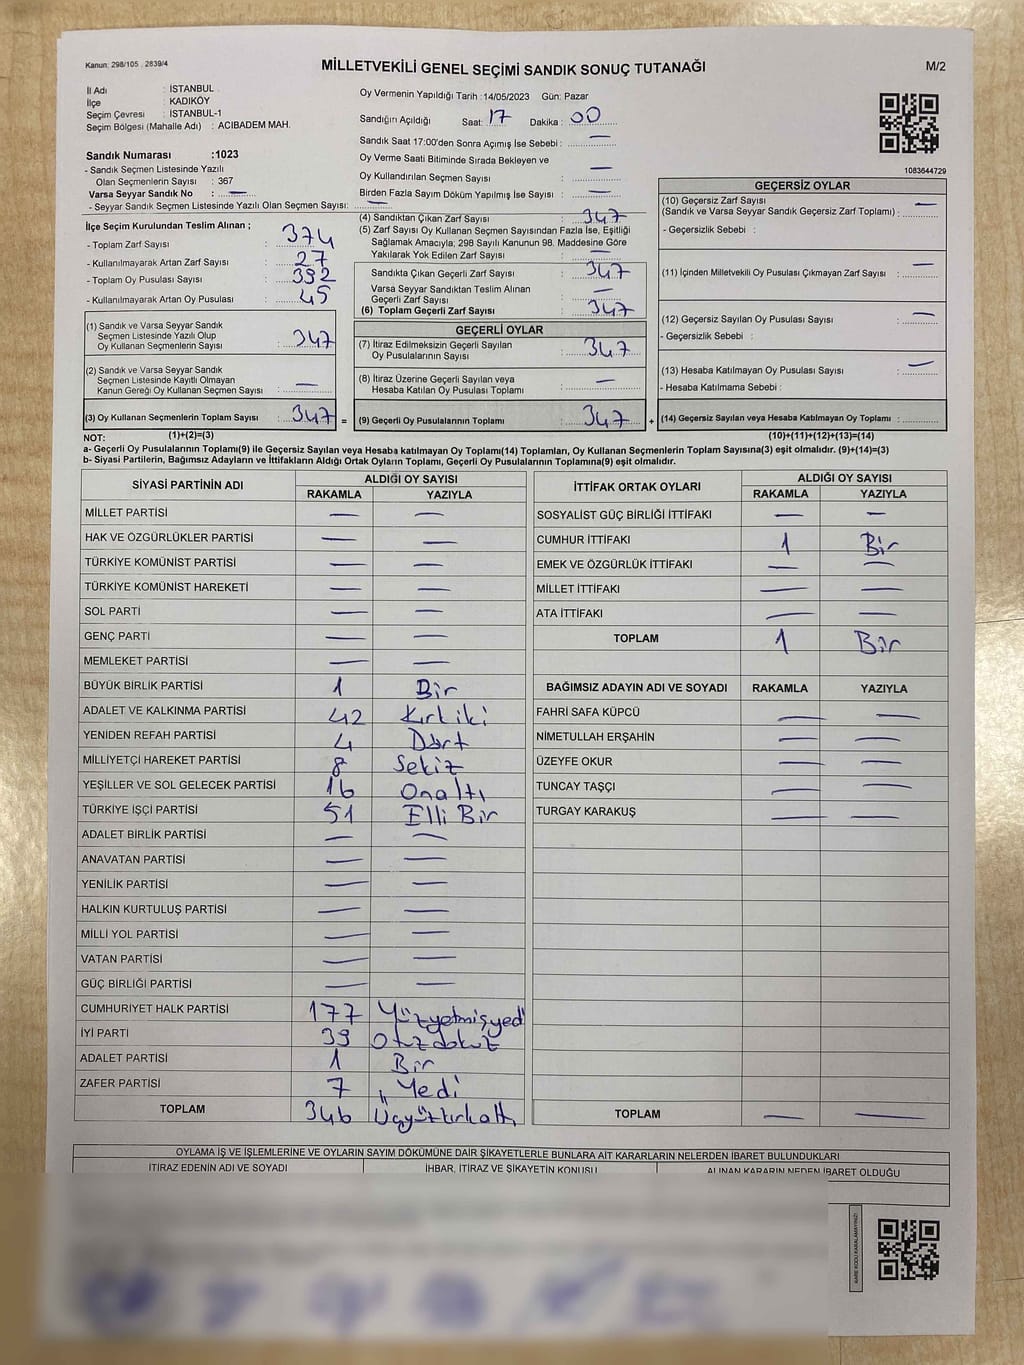 Kanun: 298/105 . 2839/4
MİLLETVEKİLİ GENEL SEÇİMİ SANDIK SONUÇ TUTANAĞI
M/2
İl Adı : İSTANBUL
İlçe : KADIKÖY
Seçim Çevresi : İSTANBUL-1
Seçim Bölgesi (Mahalle Adı) : ACIBADEM MAH.
Sandık Numarası :1023
- Sandık Seçmen Listesinde Yazılı
Olan Seçmenlerin Sayısı : 367
Varsa Seyyar Sandık No : —
- Seyyar Sandık Seçmen Listesinde Yazılı Olan Seçmen Sayısı: —
Oy Vermenin Yapıldığı Tarih :14/05/2023 Gün: Pazar
Sandığın Açıldığı Saat: 17 Dakika : 00
Sandık Saat 17:00'den Sonra Açımış İse Sebebi : —
Oy Verme Saati Bitiminde Sırada Bekleyen ve
Oy Kullandırılan Seçmen Sayısı : —
Birden Fazla Sayım Döküm Yapılmış İse Sayısı : —
1083644729
İlçe Seçim Kurulundan Teslim Alınan ;
- Toplam Zarf Sayısı : 374
- Kullanılmayarak Artan Zarf Sayısı : 27
- Toplam Oy Pusulası Sayısı : 392
- Kullanılmayarak Artan Oy Pusulası : 45
(1) Sandık ve Varsa Seyyar Sandık
Seçmen Listesinde Yazılı Olup
Oy Kullanan Seçmenlerin Sayısı : 347
(2) Sandık ve Varsa Seyyar Sandık
Seçmen Listesinde Kayıtlı Olmayan
Kanun Gereği Oy Kullanan Seçmen Sayısı : —
(3) Oy Kullanan Seçmenlerin Toplam Sayısı : 347 =
(1)+(2)=(3)
(4) Sandıktan Çıkan Zarf Sayısı : 347
(5) Zarf Sayısı Oy Kullanan Seçmen Sayısından Fazla İse, Eşitliği
Sağlamak Amacıyla; 298 Sayılı Kanunun 98. Maddesine Göre
Yakılarak Yok Edilen Zarf Sayısı : —
Sandıkta Çıkan Geçerli Zarf Sayısı : 347
Varsa Seyyar Sandıktan Teslim Alınan
Geçerli Zarf Sayısı : —
(6) Toplam Geçerli Zarf Sayısı : 347
GEÇERLİ OYLAR
(7) İtiraz Edilmeksizin Geçerli Sayılan
Oy Pusulalarının Sayısı : 347
(8) İtiraz Üzerine Geçerli Sayılan veya
Hesaba Katılan Oy Pusulası Toplamı : —
(9) Geçerli Oy Pusulalarının Toplamı : 347 +
GEÇERSİZ OYLAR
(10) Geçersiz Zarf Sayısı
(Sandık ve Varsa Seyyar Sandık Geçersiz Zarf Toplamı) : —
- Geçersizlik Sebebi :
(11) İçinden Milletvekili Oy Pusulası Çıkmayan Zarf Sayısı : —
(12) Geçersiz Sayılan Oy Pusulası Sayısı : —
- Geçersizlik Sebebi :
(13) Hesaba Katılmayan Oy Pusulası Sayısı : —
- Hesaba Katılmama Sebebi :
(14) Geçersiz Sayılan veya Hesaba Katılmayan Oy Toplamı :
(10)+(11)+(12)+(13)=(14)
NOT:
a- Geçerli Oy Pusulalarının Toplamı(9) ile Geçersiz Sayılan veya Hesaba katılmayan Oy Toplamı(14) Toplamları, Oy Kullanan Seçmenlerin Toplam Sayısına(3) eşit olmalıdır. (9)+(14)=(3)
b- Siyasi Partilerin, Bağımsız Adayların ve İttifakların Aldığı Ortak Oyların Toplamı, Geçerli Oy Pusulalarının Toplamına(9) eşit olmalıdır.
SİYASİ PARTİNİN ADI ALDIĞI OY SAYISI
RAKAMLA YAZIYLA
MİLLET PARTİSİ — —
HAK VE ÖZGÜRLÜKLER PARTİSİ — —
TÜRKİYE KOMÜNİST PARTİSİ — —
TÜRKİYE KOMÜNİST HAREKETİ — —
SOL PARTİ — —
GENÇ PARTİ — —
MEMLEKET PARTİSİ — —
BÜYÜK BİRLİK PARTİSİ 1 Bir
ADALET VE KALKINMA PARTİSİ 42 Kırk iki
YENİDEN REFAH PARTİSİ 4 Dört
MİLLİYETÇİ HAREKET PARTİSİ 8 Sekiz
YEŞİLLER VE SOL GELECEK PARTİSİ 16 Onaltı
TÜRKİYE İŞÇİ PARTİSİ 51 Elli Bir
ADALET BİRLİK PARTİSİ — —
ANAVATAN PARTİSİ — —
YENİLİK PARTİSİ — —
HALKIN KURTULUŞ PARTİSİ — —
MİLLİ YOL PARTİSİ — —
VATAN PARTİSİ — —
GÜÇ BİRLİĞİ PARTİSİ — —
CUMHURİYET HALK PARTİSİ 177 Yüzyetmişyedi
İYİ PARTİ 39 Otuzdokuz
ADALET PARTİSİ 1 Bir
ZAFER PARTİSİ 7 Yedi
TOPLAM 346 Üçyüzkırkaltı
İTTİFAK ORTAK OYLARI ALDIĞI OY SAYISI
RAKAMLA YAZIYLA
SOSYALİST GÜÇ BİRLİĞİ İTTİFAKI — —
CUMHUR İTTİFAKI 1 Bir
EMEK VE ÖZGÜRLÜK İTTİFAKI — —
MİLLET İTTİFAKI — —
ATA İTTİFAKI — —
TOPLAM 1 Bir
BAĞIMSIZ ADAYIN ADI VE SOYADI RAKAMLA YAZIYLA
FAHRİ SAFA KÜPCÜ — —
NİMETULLAH ERŞAHİN — —
ÜZEYFE OKUR — —
TUNCAY TAŞÇI — —
TURGAY KARAKUŞ — —
TOPLAM — —
OYLAMA İŞ VE İŞLEMLERİNE VE OYLARIN SAYIM DÖKÜMÜNE DAİR ŞİKAYETLERLE BUNLARA AİT KARARLARIN NELERDEN İBARET BULUNDUKLARI
İTİRAZ EDENİN ADI VE SOYADI İHBAR, İTİRAZ VE ŞİKAYETİN KONUSU ALINAN KARARIN NEDEN İBARET OLDUĞU
KARE KODU KARALAMAYINIZ!